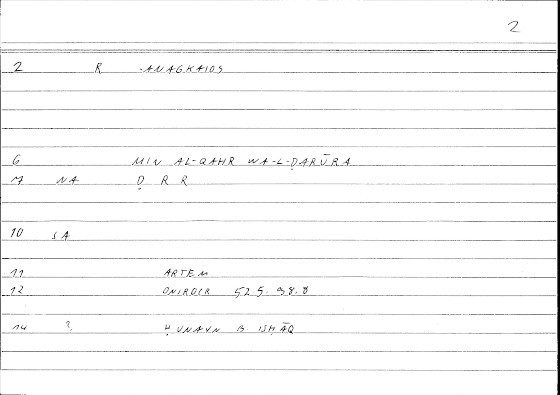 2
2 R -ANAGKAIOS
6 MIN AL-QAHR WA-L-ḌARŪRA
7 NA Ḍ R R
10 SA
11 ARTEM
12 ONIROCR 525.98,8
14 ? ḤUNAYN B ISḤĀQ